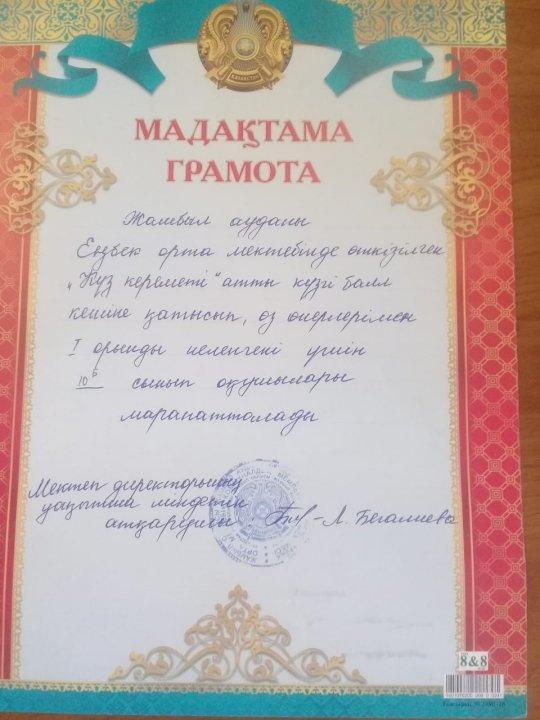 ҚАЗАҚСТАН
МАДАҚТАМА
ГРАМОТА
Жамбыл ауданы
Еңбек орта мектебінде өткізілген
"Күз кереметі" атты күзгі балл
кешіне қатысып, өз өнерлерімен
I орынды иеленгені үшін
10 б сынып оқушылары
марапатталады
Мектеп директорының
уақытша міндетін
атқарушы
Л. Бегалиева
8&8